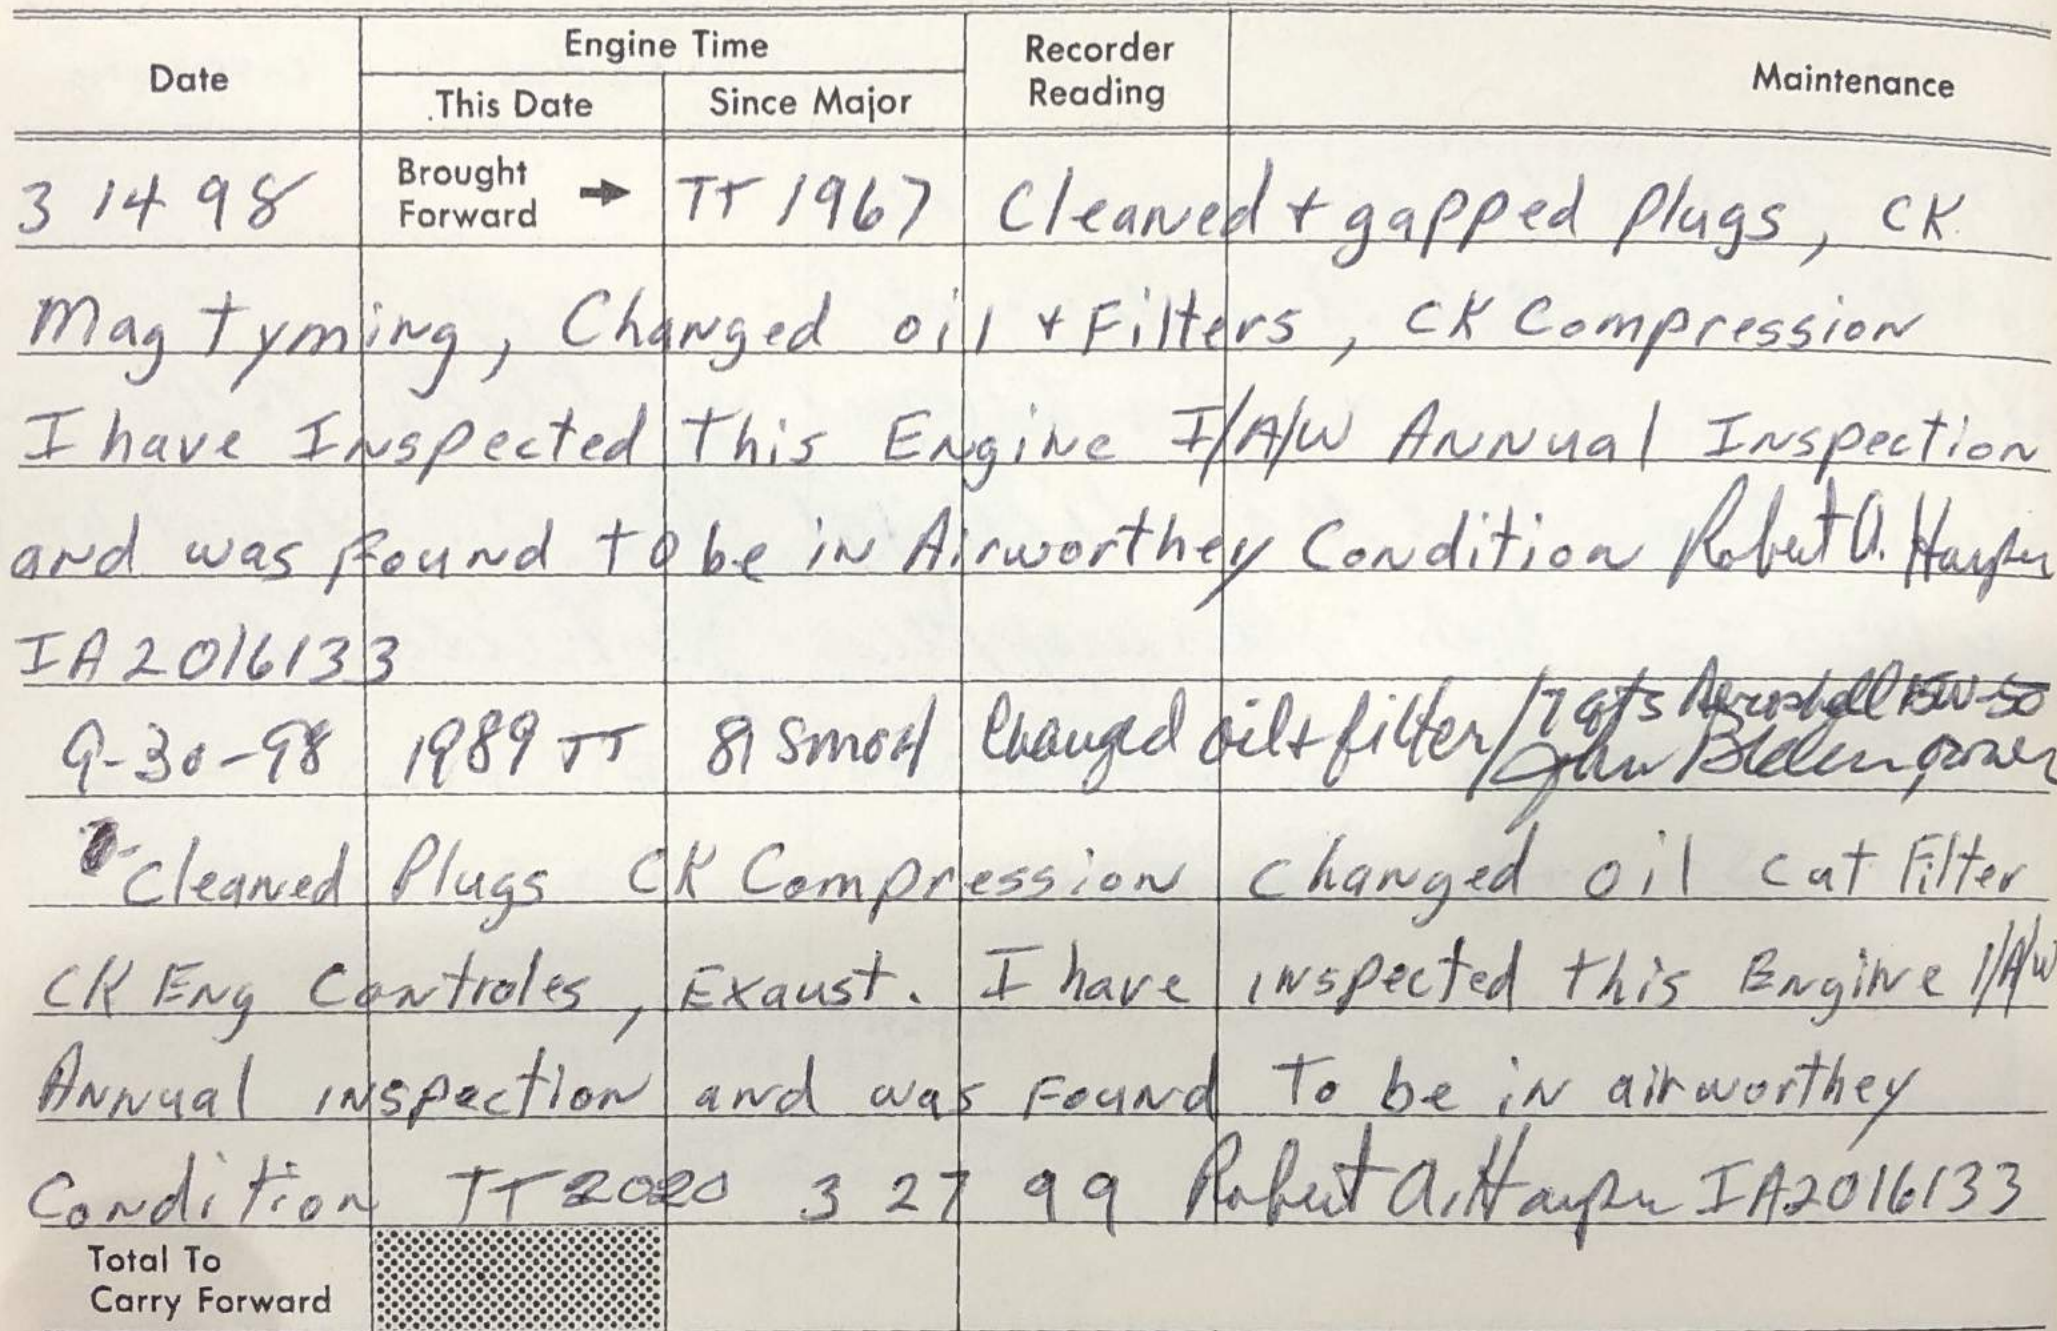 Date Engine Time Recorder Reading Maintenance
This Date Since Major
3 14 98 Brought Forward → TT 1967 Cleaned + gapped plugs, CK
Mag tyming, Changed oil + Filters, CK Compression
I have Inspected this Engine I/A/W Annual Inspection
and was found to be in Airworthey Condition Robert A.
IA 2016133
9-30-98 1989 TT 81 SMOH Changed oil + filter / 7 qts Aeroshell 15W-50
John owner
Cleaned Plugs CK Compression changed oil cut Filter
CK Eng Controles, Exaust. I have inspected this Engine I/A/W
Annual inspection and was found to be in airworthey
Condition TT 2020 3 27 99 Robert A. IA2016133
Total To
Carry Forward